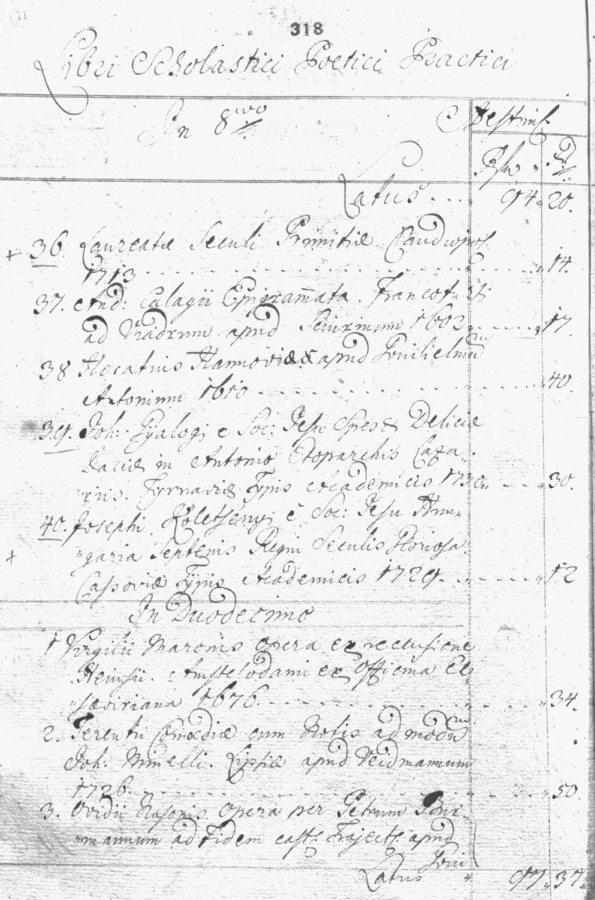 318
Libri Scholastici Poetici Practici
In 8vo
Æstim.
Rfl. d
Latus .... 94 20.
36. Laureatæ Seculi Primitiæ Claudiopol.
1713 .... 14.
37. And: Calagii Epigram̄ata. Francofurti
ad Viadrum apud 1602 .... 17.
38 Horatius Hannoviæ apud Guilielmum
Antonium 1610 .... 40.
39. Joh: Gyalogi e Soc: Jesu Spes & Deliciæ
Daciæ in Antonio
Tyrnaviæ Typis Academicis .... 30.
40. Josephi Koletsenyi e Soc: Jesu Hun-
garia Septemis Regni Seculis
Cassoviæ Typis Academicis 1729. .... 12
In Duodecimo
1 Virgilii Maronis opera ex recensione
Heinsii. Amstelodami ex Officina El-
seviriana 1676. .... 34.
2. Terentii Comœdiæ cum Notis ad modum
Joh. Minelli. Lipsiæ apud Weidmannum
1726. .... 50.
3. Ovidii Nasonis opera per Petrum Bur-
mannum ad Fidem cast. Traject. apud
Latus " 97. 37.